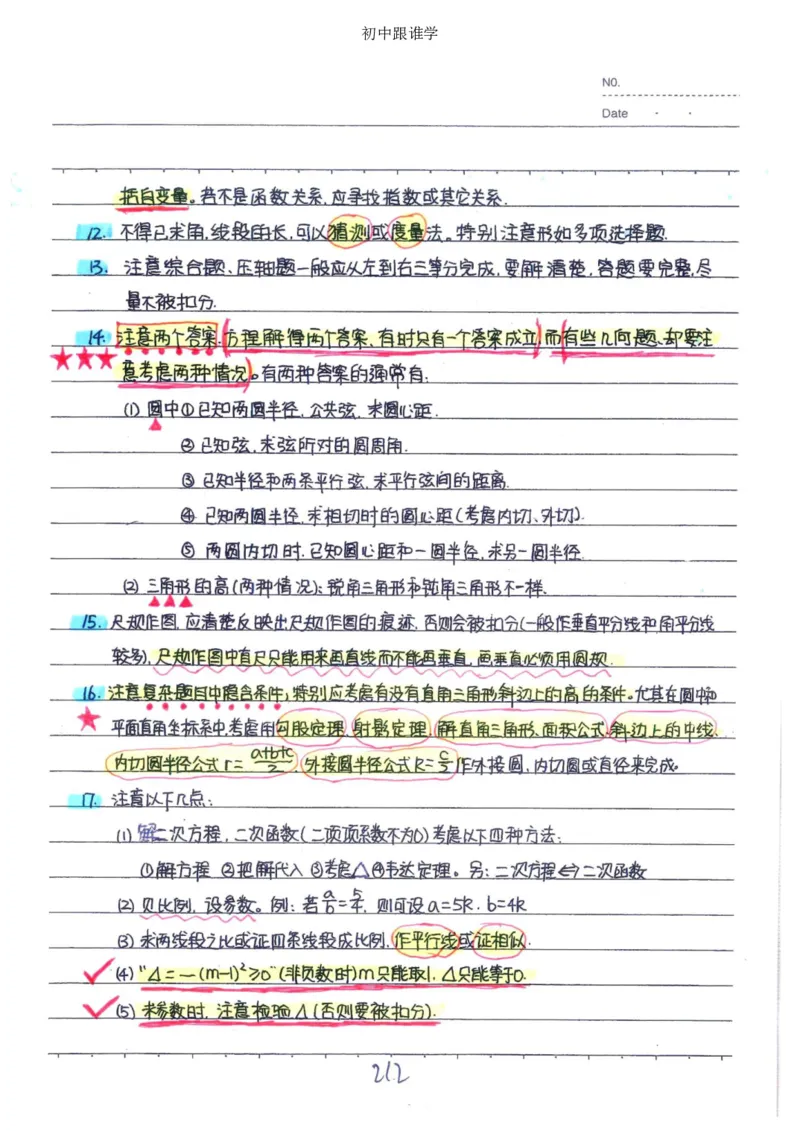 初中跟谁学
NO.
Date
括自变量。若不是函数关系,应寻找指数或其它关系.
12. 不得已求角,线段的长,可以猜测或度量法。特别注意形如多项选择题.
13. 注意综合题、压轴题一般应从左到右三等分完成,要解清楚,答题要完整,尽
量不被扣分.
14. 注意两个答案.(方程解得两个答案、有时只有一个答案成立)而(有些几何题、却要注
意考虑两种情况)。有两种答案的通常有:
(1) 圆中①已知两圆半径,公共弦,求圆心距.
② 已知弦,求弦所对的圆周角.
③ 已知半径和两条平行弦,求平行弦间的距离.
④ 已知两圆半径,求相切时的圆心距(考虑内切、外切).
⑤ 两圆内切时,已知圆心距和一圆半径,求另一圆半径.
(2) 三角形的高(两种情况):锐角三角形和钝角三角形不一样.
15. 尺规作图,应清楚反映出尺规作图的痕迹,否则会被扣分(一般作垂直平分线和角平分线
较多),尺规作图中直尺只能用来画直线而不能画垂直,画垂直必须用圆规.
16. 注意复杂题目中隐含条件;特别应考虑有没有直角三角形斜边上的高的条件。尤其在圆中和
平面直角坐标系中,考虑用勾股定理,射影定理,解直角三角形,面积公式,斜边上的中线、
内切圆半径公式r=a+b+c/2,外接圆半径公式R=c/2作外接圆,内切圆或直径来完成。
17. 注意以下几点:
(1) 解二次方程,二次函数(二项项系数不为0)考虑以下四种方法:
①解方程 ②把解代入 ③考虑△ ④韦达定理。另:二次方程⇔二次函数
(2) 见比例,设参数。例:若a/b=5/4,则可设a=5k.b=4k
(3) 求两线段之比或证四条线段成比例,作平行线或证相似.
(4) "△=-(m-1)²≥0"(非负数时)m只能取1,△只能等于0.
(5) 求参数时,注意检验△(否则要被扣分).
212